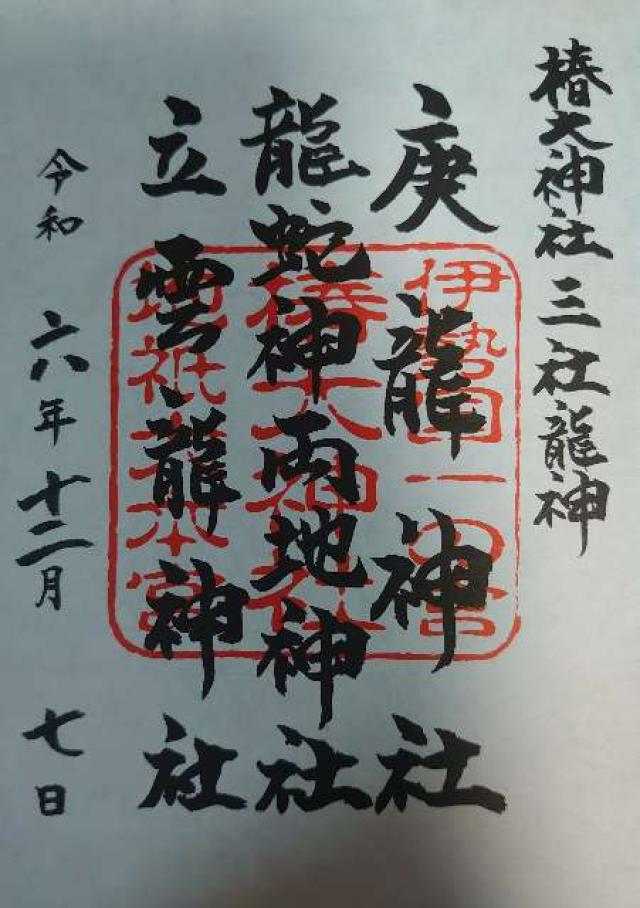 椿大神社 三社龍神
庚龍神社
龍蛇神両地神社
立雲龍神社
令和 六年 十二月 七日
伊勢国一の宮
椿大神社
地祇大本宮